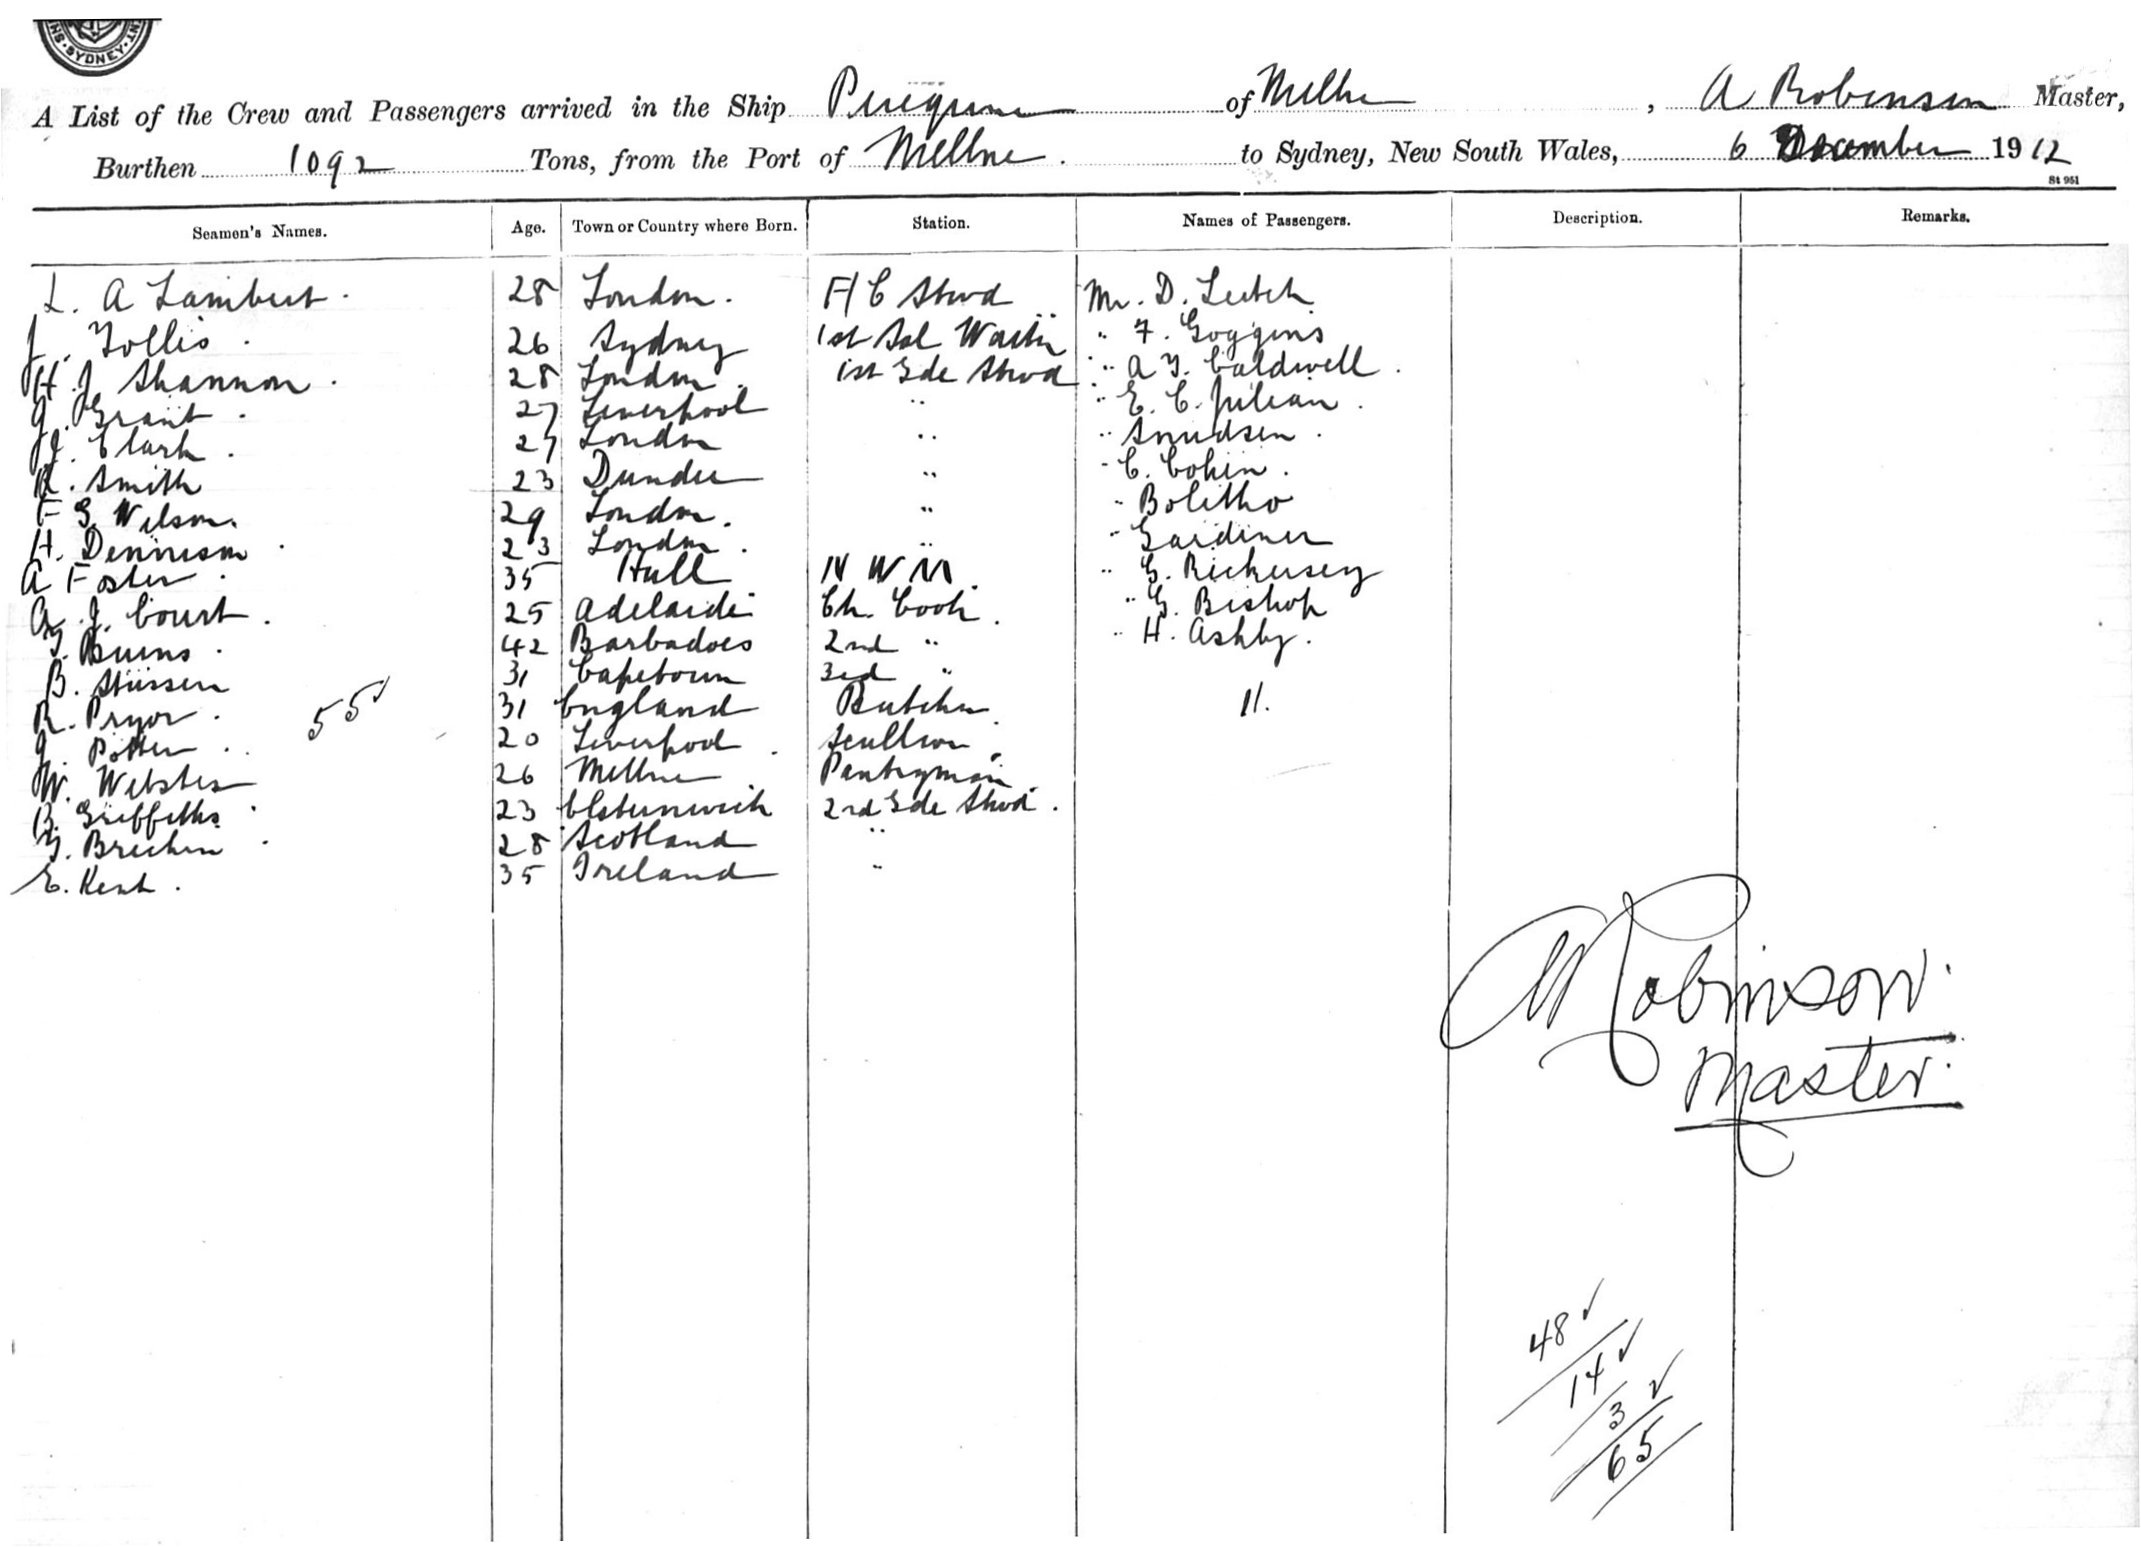 SYDNEY
A List of the Crew and Passengers arrived in the Ship Peregrine of Melbne, A Robinson Master,
Burthen 1092 Tons, from the Port of Melbne. to Sydney, New South Wales, 6 December 1912
St 951
Seamen's Names. Age. Town or Country where Born. Station. Names of Passengers. Description. Remarks.
L. A Lambert. 28 London. F/C Stwd Mr. D. Leitch
J. Tollis. 26 Sydney 1st Sal Waiter " F. Goggins
H. J. Shannon. 28 London. 1st Gde Stwd " A. Y. Caldwell.
J. Grant. 27 Liverpool " " E. C. Julian.
J. Clark. 27 London " " Knudsen.
R. Smith 23 Dundee " " C. Cohen.
F G Wilson. 29 London. " " Bolitho
H. Dennison. 23 London. " " Gardiner
A Foster. 35 Hull N W M. " G. Rickersey
A. J. Court. 25 Adelaide Ch. Cook. " G. Bishop
T. Burns. 42 Barbadoes 2nd " " H. Ashby.
B. Stüssen 31 Capetown 3rd "
R. Pryor. 55 31 England Butcher. 11.
J. Potter.. 20 Liverpool. Scullion.
W. Webster 26 Melbne Pantryman
B. Griffiths. 23 Elsternwick 2nd Gde Stwd.
G. Brechin. 28 Scotland "
E. Kent. 35 Ireland "
A Robinson.
Master.
48
14
3
65